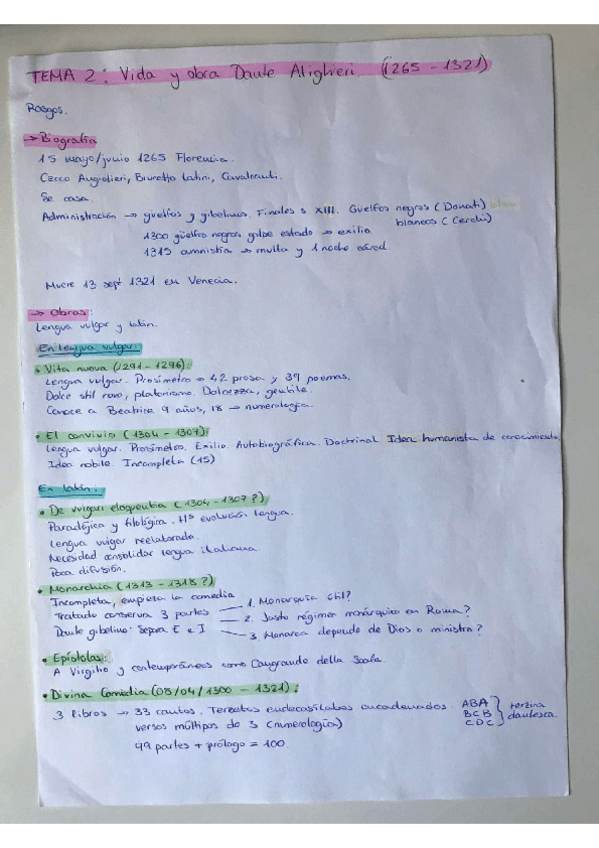 TEMA 2: Vida y obra Dante Alighieri (1265 - 1321)
Rasgos.
→ Biografía
15 mayo/junio 1265 Florencia.
Cecco Angiolieri, Brunetto Latini, Cavalcanti.
Se casa.
Administración → guelfos y gibelinos. Finales s XIII. Guelfos negros (Donati)
blancos (Cerchi)
1300 güelfos negros golpe estado → exilio
1315 amnistía → multa y 1 noche cárcel
Muere 13 sept 1321 en Venecia.
→ Obras:
Lengua vulgar y latín.
En lengua vulgar:
• Vita nuova (1291 - 1296):
Lengua vulgar. Prosímetro → 42 prosa y 39 poemas.
Dolce stil novo, platonismo. Dolcezza, gentile.
Conoce a Beatrice 9 años, 18 → numerología.
• El convivio (1304 - 1307):
Lengua vulgar. Prosímetro. Exilio. Autobiográfica. Doctrinal Idea humanista de conocimiento
Idea nobile. Incompleta (15)
En latín:
• De vulgari eloquentia (1304 - 1307?)
Paradójica y filológica. Hª evolución lengua.
Lengua vulgar reelaborada.
Necesidad consolidar lengua italiana.
Poca difusión.
• Monarchia (1313 - 1318?)
Incompleta, empieza la comedia
Tratado conserva 3 partes
1. Monarquía útil?
2. Justo régimen monárquico en Roma?
3. Monarca depende de Dios o ministro?
Dante gibelino: Separa E e I
• Epístolas:
A Virgilio y contemporáneos como Cangrande della Scala.
• Divina Comedia (08/04/1300 - 1321):
3 libros → 33 cantos. Tercetos endecasílabos encadenados. ABA
BCB
CDC
terzina
dantesca.
versos múltiplos de 3 (numerología)
99 partes + prólogo = 100.